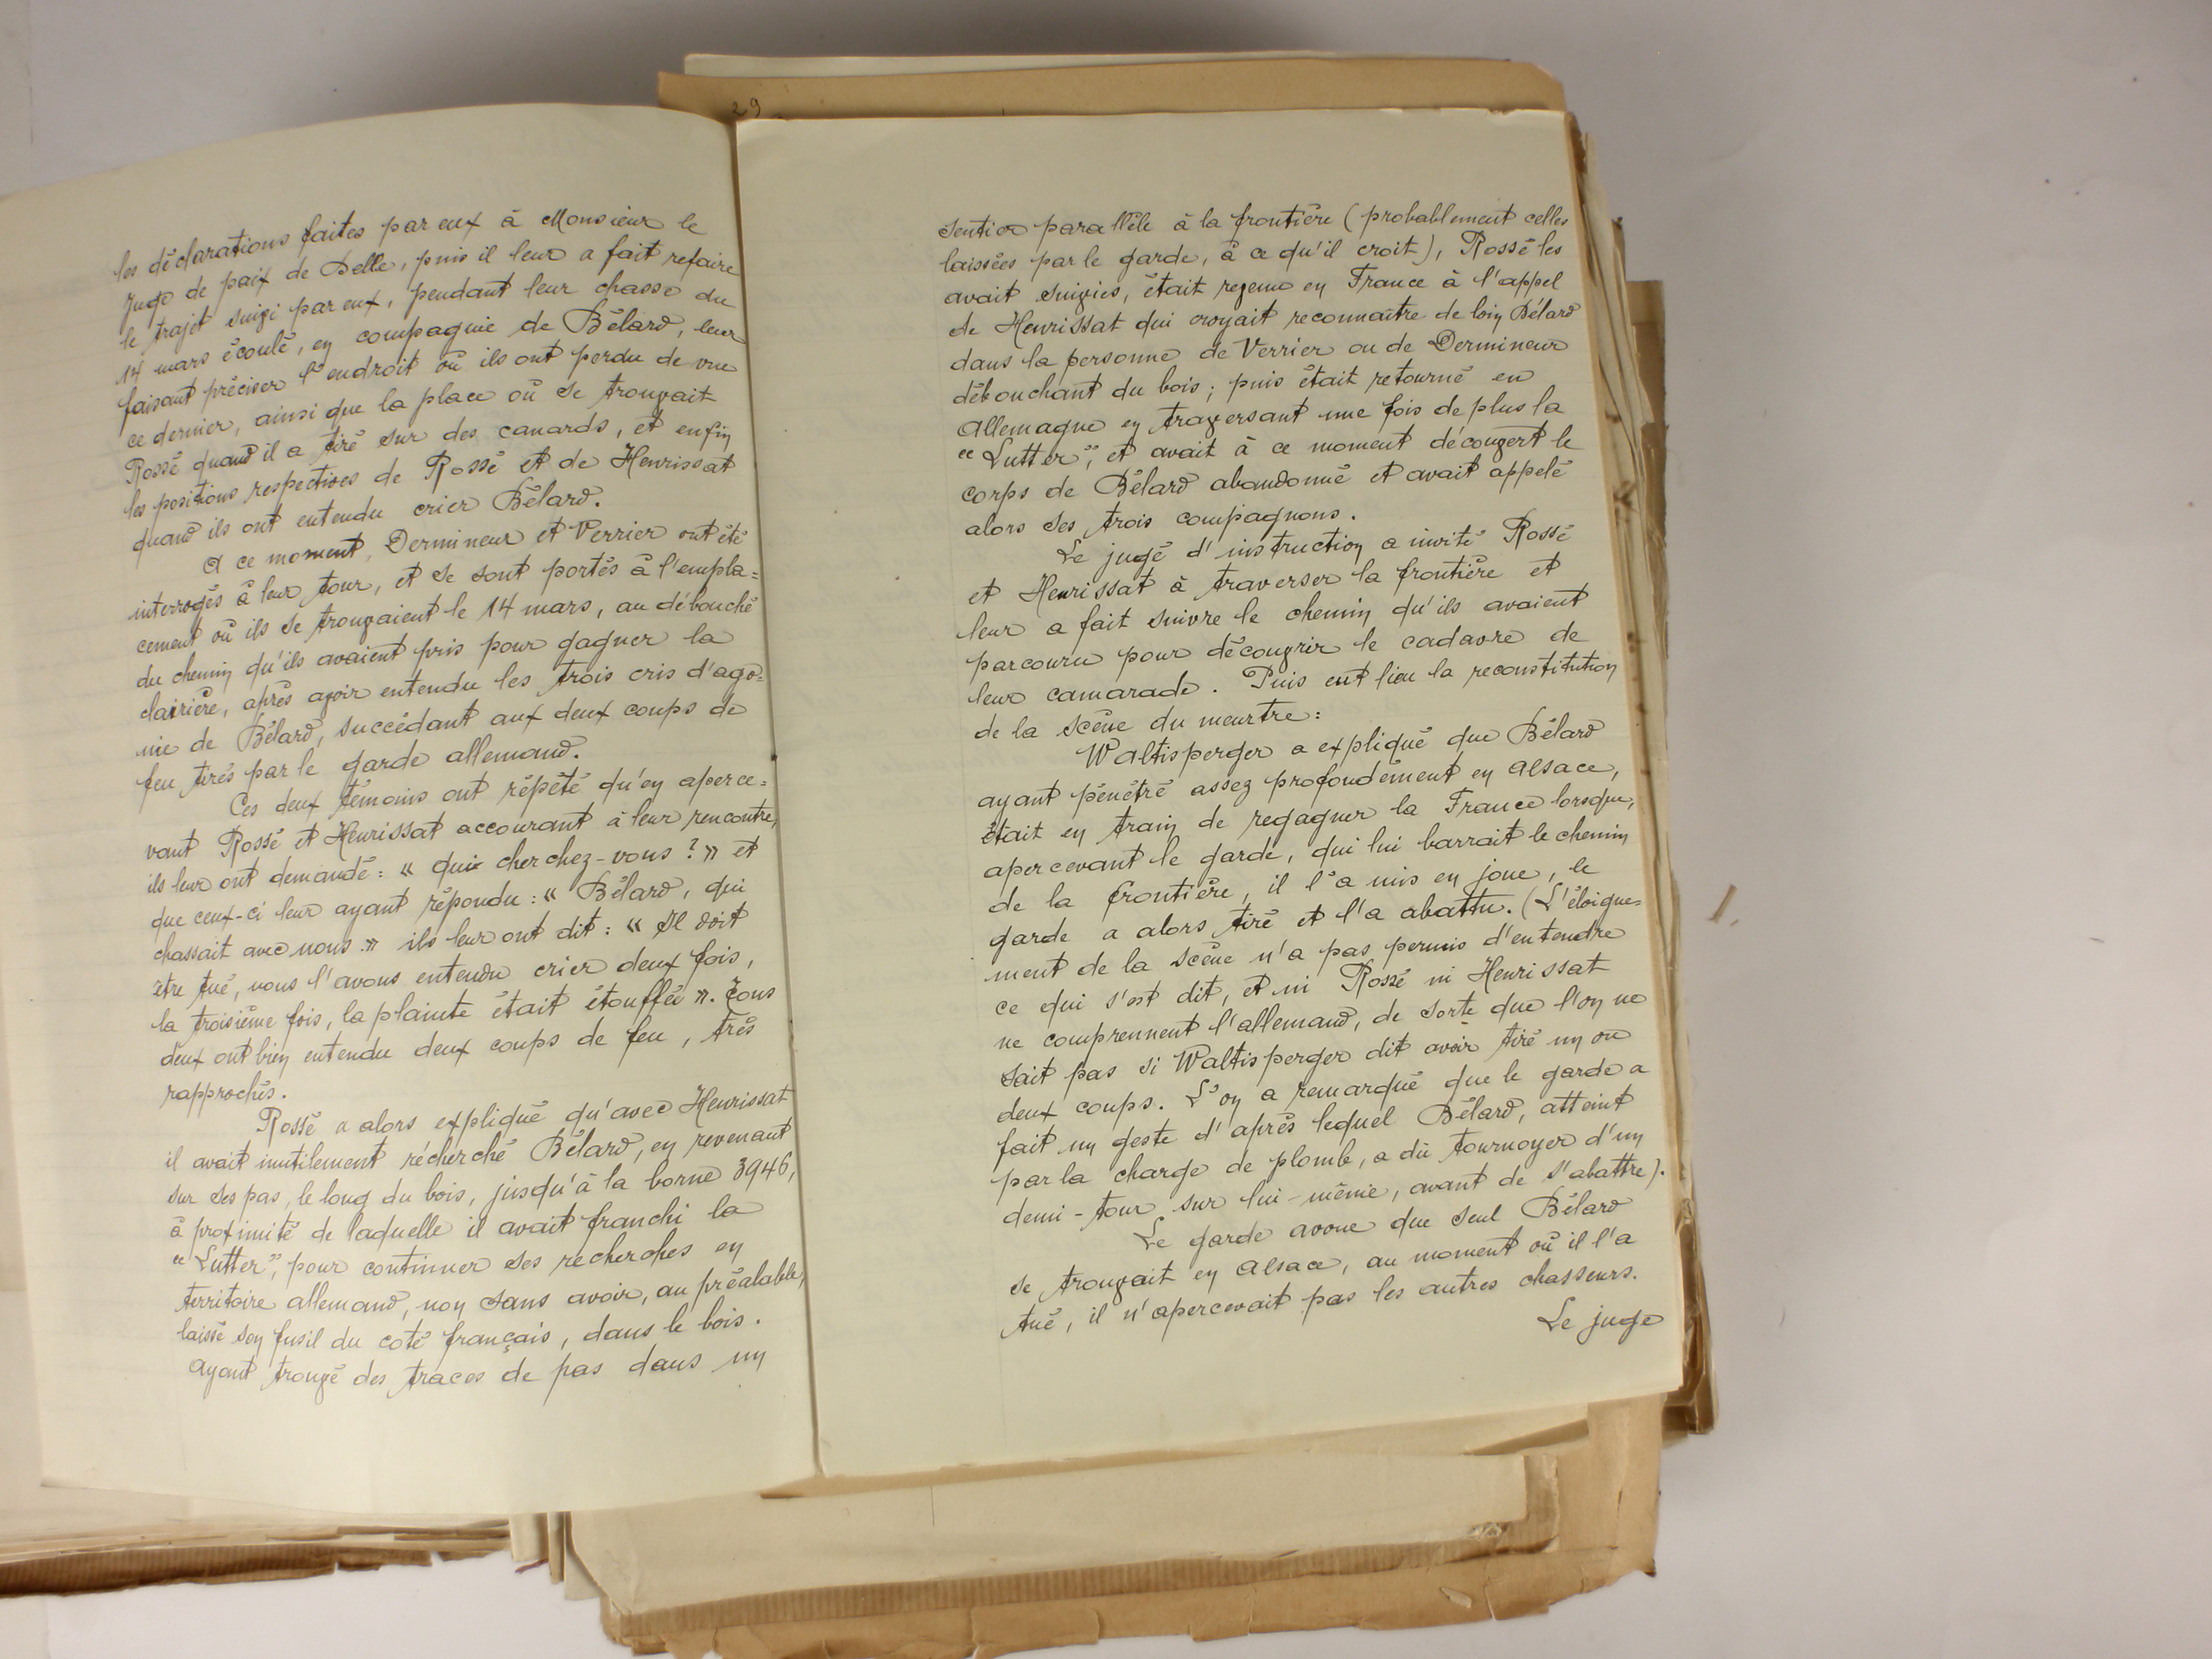 29
les déclarations faites par eux à Monsieur le
Juge de paix de Delle, puis il leur a fait refaire
le trajet suivi par eux, pendant leur chasse du
14 mars écoulé, en compagnie de Bélard, leur
faisant préciser l'endroit où ils ont perdu de vue
ce dernier, ainsi que la place où se trouvait
Rossé quand il a tiré sur des canards, et enfin
les positions respectives de Rossé et de Henrissat
quand ils ont entendu crier Bélard.
A ce moment, Dermineur et Verrier ont été
interrogés à leur tour, et se sont portés à l'empla=
cement où ils se trouvaient le 14 mars, au débouché
du chemin qu'ils avaient pris pour gagner la
clairière, après avoir entendu les trois cris d'ago=
nie de Bélard, succédant aux deux coups de
feu tirés par le garde allemand.
Ces deux témoins ont répété qu'en aperce=
vant Rossé et Henrissat accourant à leur rencontre,
ils leur ont demandé : « qui cherchez-vous ? » et
que ceux-ci leur ayant répondu : « Bélard, qui
chassait avec nous. » ils leur ont dit : « Il doit
être tué, nous l'avons entendu crier deux fois,
la troisième fois, la plainte était étouffée ». Tous
deux ont bien entendu deux coups de feu, très
rapprochés.
Rossé a alors expliqué qu'avec Henrissat
il avait inutilement récherché Bélard, en revenant
sur ses pas, le long du bois, jusqu'à la borne 3946,
à proximité de laquelle il avait franchi la
"Lutter", pour continuer ses recherches en
territoire allemand, non sans avoir, au préalable,
laissé son fusil du coté français, dans le bois.
Ayant trouvé des traces de pas dans un
sentier parallèle à la frontière (probablement celles
laissées par le garde, à ce qu'il croit), Rossé les
avait suivies, était revenu en France à l'appel
de Henrissat qui croyait reconnaître de loin Bélard
dans la personne de Verrier ou de Dermineur
débouchant du bois ; puis était retourné en
Allemagne en traversant une fois de plus la
"Lutter", et avait à ce moment découvert le
corps de Bélard abandonné et avait appelé
alors ses trois compagnons.
Le jugé d'instruction a invité Rossé
et Henrissat à traverser la frontière et
leur a fait suivre le chemin qu'ils avaient
parcouru pour découvrir le cadavre de
leur camarade. Puis eut lieu la reconstitution
de la scène du meurtre :
Waltisperger a expliqué que Bélard
ayant pénétré assez profondément en Alsace,
était en train de regagner la France lorsque,
apercevant le garde, qui lui barrait le chemin
de la frontière, il l'a mis en joue, le
garde a alors tiré et l'a abattu. (L'éloigne=
ment de la scène n'a pas permis d'entendre
ce qui s'est dit, et ni Rossé ni Henrissat
ne comprennent l'allemand, de sorte que l'on ne
sait pas si Waltisperger dit avoir tiré un ou
deux coups. L'on a remarqué que le garde a
fait un geste d'après lequel Bélard, atteint
par la charge de plomb, a dû tournoyer d'un
demi-tour sur lui-même, avant de s'abattre).
Le garde avoue que seul Bélard
se trouvait en Alsace, au moment où il l'a
tué, il n'apercevait pas les autres chasseurs.
Le juge